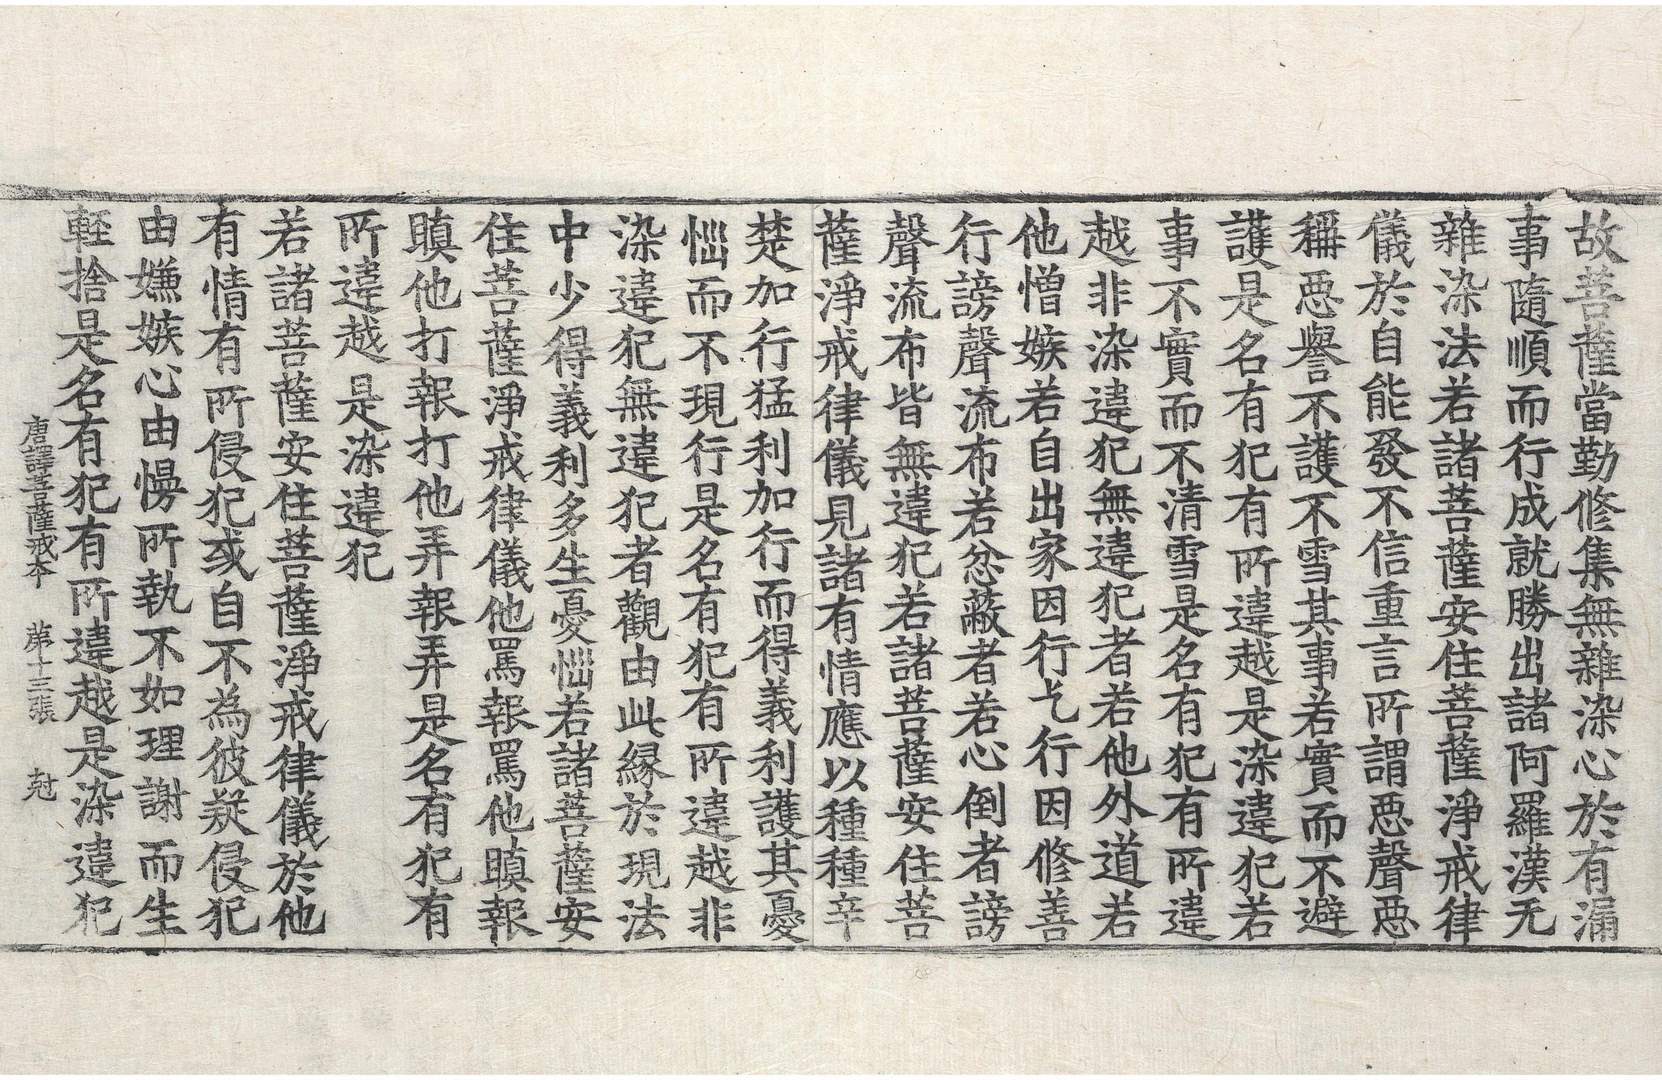 故菩薩當勤修集無雜染心於有漏
事隨順而行成就勝出諸阿羅漢无
雜染法若諸菩薩安住菩薩淨戒律
儀於自能發不信重言所謂惡聲惡
稱惡譽不護不雪其事若實而不避
護是名有犯有所違越是染違犯若
事不實而不清雪是名有犯有所違
越非染違犯無違犯者若他外道若
他憎嫉若自出家因行乞行因修善
行謗聲流布若忿蔽者若心倒者謗
聲流布皆無違犯若諸菩薩安住菩
薩淨戒律儀見諸有情應以種種辛
楚加行猛利加行而得義利護其憂
惱而不現行是名有犯有所違越非
染違犯無違犯者觀由此緣於現法
中少得義利多生憂惱若諸菩薩安
住菩薩淨戒律儀他罵報罵他瞋報
瞋他打報打他弄報弄是名有犯有
所違越是染違犯
若諸菩薩安住菩薩淨戒律儀於他
有情有所侵犯或自不為彼疑侵犯
由嫌嫉心由慢所執不如理謝而生
輕捨是名有犯有所違越是染違犯
唐譯菩薩戒本 第十三張 尅